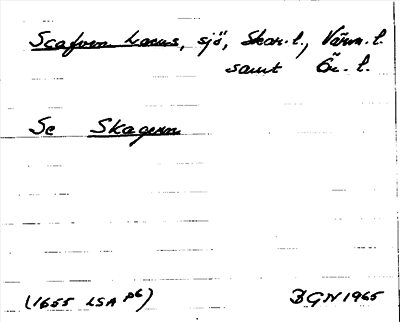 Scafven Lacus, sjö, Skar. l., Värm. l.
samt Ör. l.
Se Skagern
(1655 LSA p6) BGN 1965